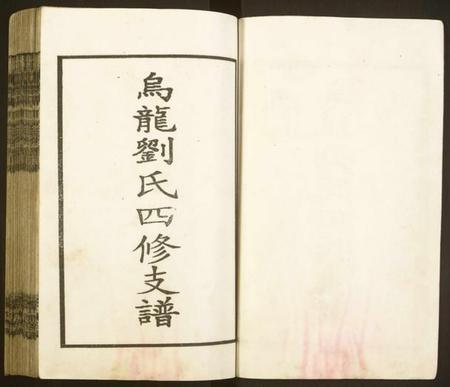 烏龍劉氏四修支譜